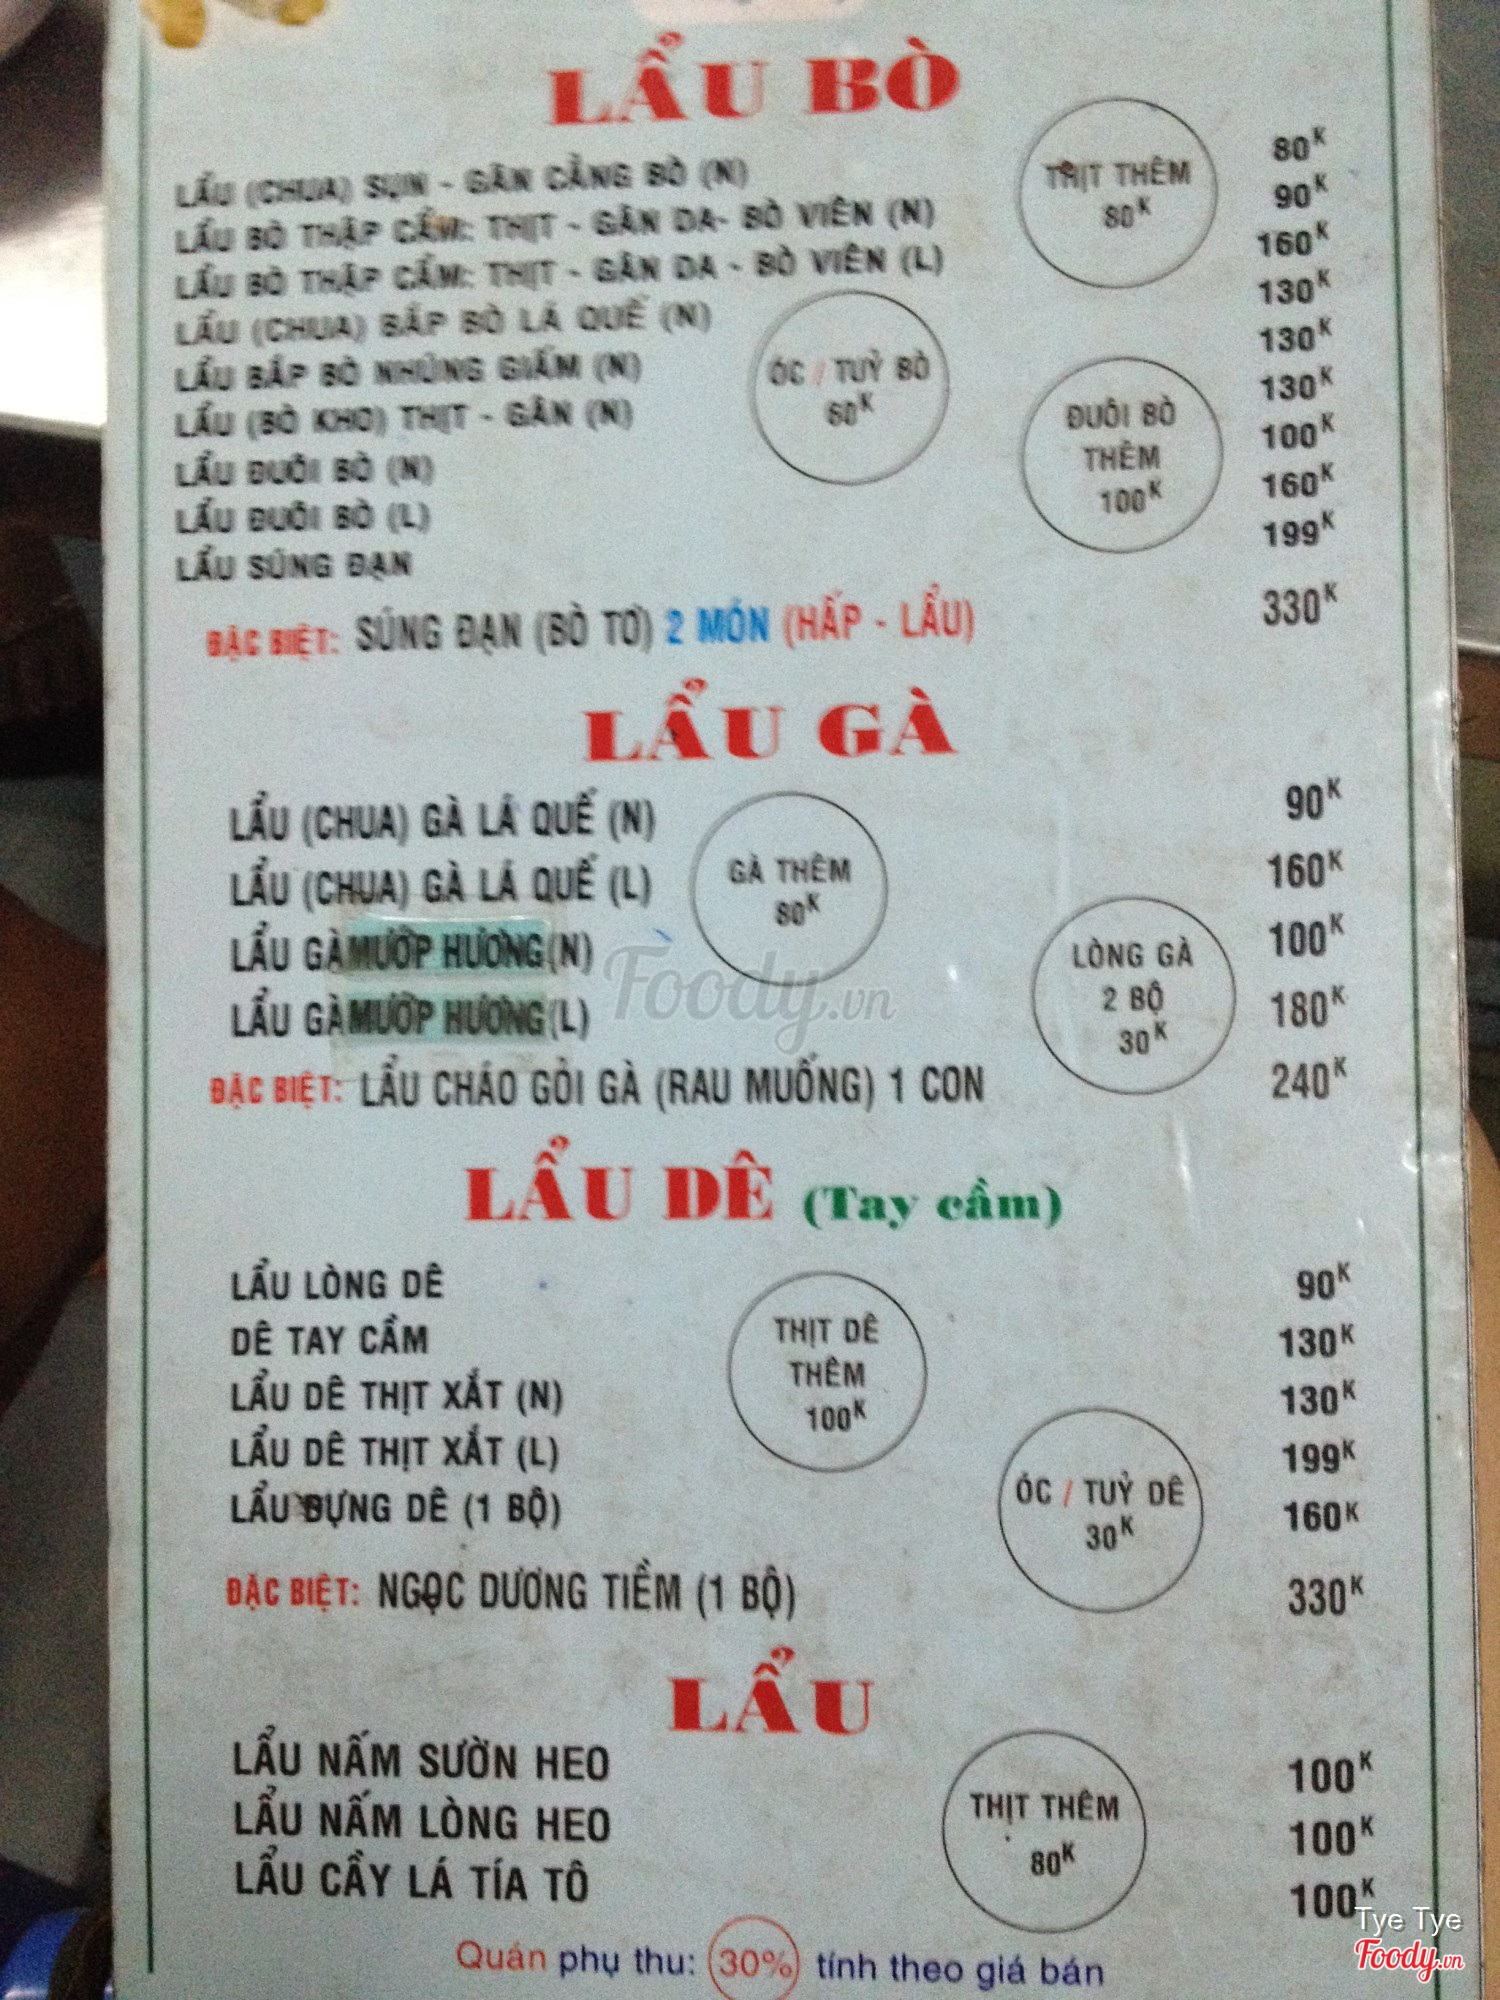 LẨU BÒ
LẨU (CHUA) SỤN - GÂN CẲNG BÒ (N) 80K
LẨU BÒ THẬP CẨM: THỊT - GÂN DA- BÒ VIÊN (N) 90K
LẨU BÒ THẬP CẨM: THỊT - GÂN DA - BÒ VIÊN (L) 160K
LẨU (CHUA) BẮP BÒ LÁ QUẾ (N) 130K
LẨU BẮP BÒ NHÚNG GIẤM (N) 130K
LẨU (BÒ KHO) THỊT - GÂN (N) 130K
LẨU ĐUÔI BÒ (N) 100K
LẨU ĐUÔI BÒ (L) 160K
LẨU SÚNG ĐẠN 199K
THỊT THÊM
80K
ÓC / TUỶ BÒ
60K
ĐUÔI BÒ
THÊM
100K
ĐẶC BIỆT: SÚNG ĐẠN (BÒ TƠ) 2 MÓN (HẤP - LẨU) 330K
LẨU GÀ
LẨU (CHUA) GÀ LÁ QUẾ (N) 90K
LẨU (CHUA) GÀ LÁ QUẾ (L) 160K
LẨU GÀ MƯỚP HƯƠNG (N) 100K
LẨU GÀ MƯỚP HƯƠNG (L) 180K
GÀ THÊM
80K
LÒNG GÀ
2 BỘ
30K
ĐẶC BIỆT: LẨU CHÁO GỎI GÀ (RAU MUỐNG) 1 CON 240K
LẨU DÊ (Tay cầm)
LẨU LÒNG DÊ 90K
DÊ TAY CẦM 130K
LẨU DÊ THỊT XẮT (N) 130K
LẨU DÊ THỊT XẮT (L) 199K
LẨU DỰNG DÊ (1 BỘ) 160K
THỊT DÊ
THÊM
100K
ÓC / TUỶ DÊ
30K
ĐẶC BIỆT: NGỌC DƯƠNG TIỀM (1 BỘ) 330K
LẨU
LẨU NẤM SƯỜN HEO 100K
LẨU NẤM LÒNG HEO 100K
LẨU CẦY LÁ TÍA TÔ 100K
THỊT THÊM
80K
Quán phụ thu: 30% tính theo giá bán
Foody.vn
Tye Tye
Foody.vn